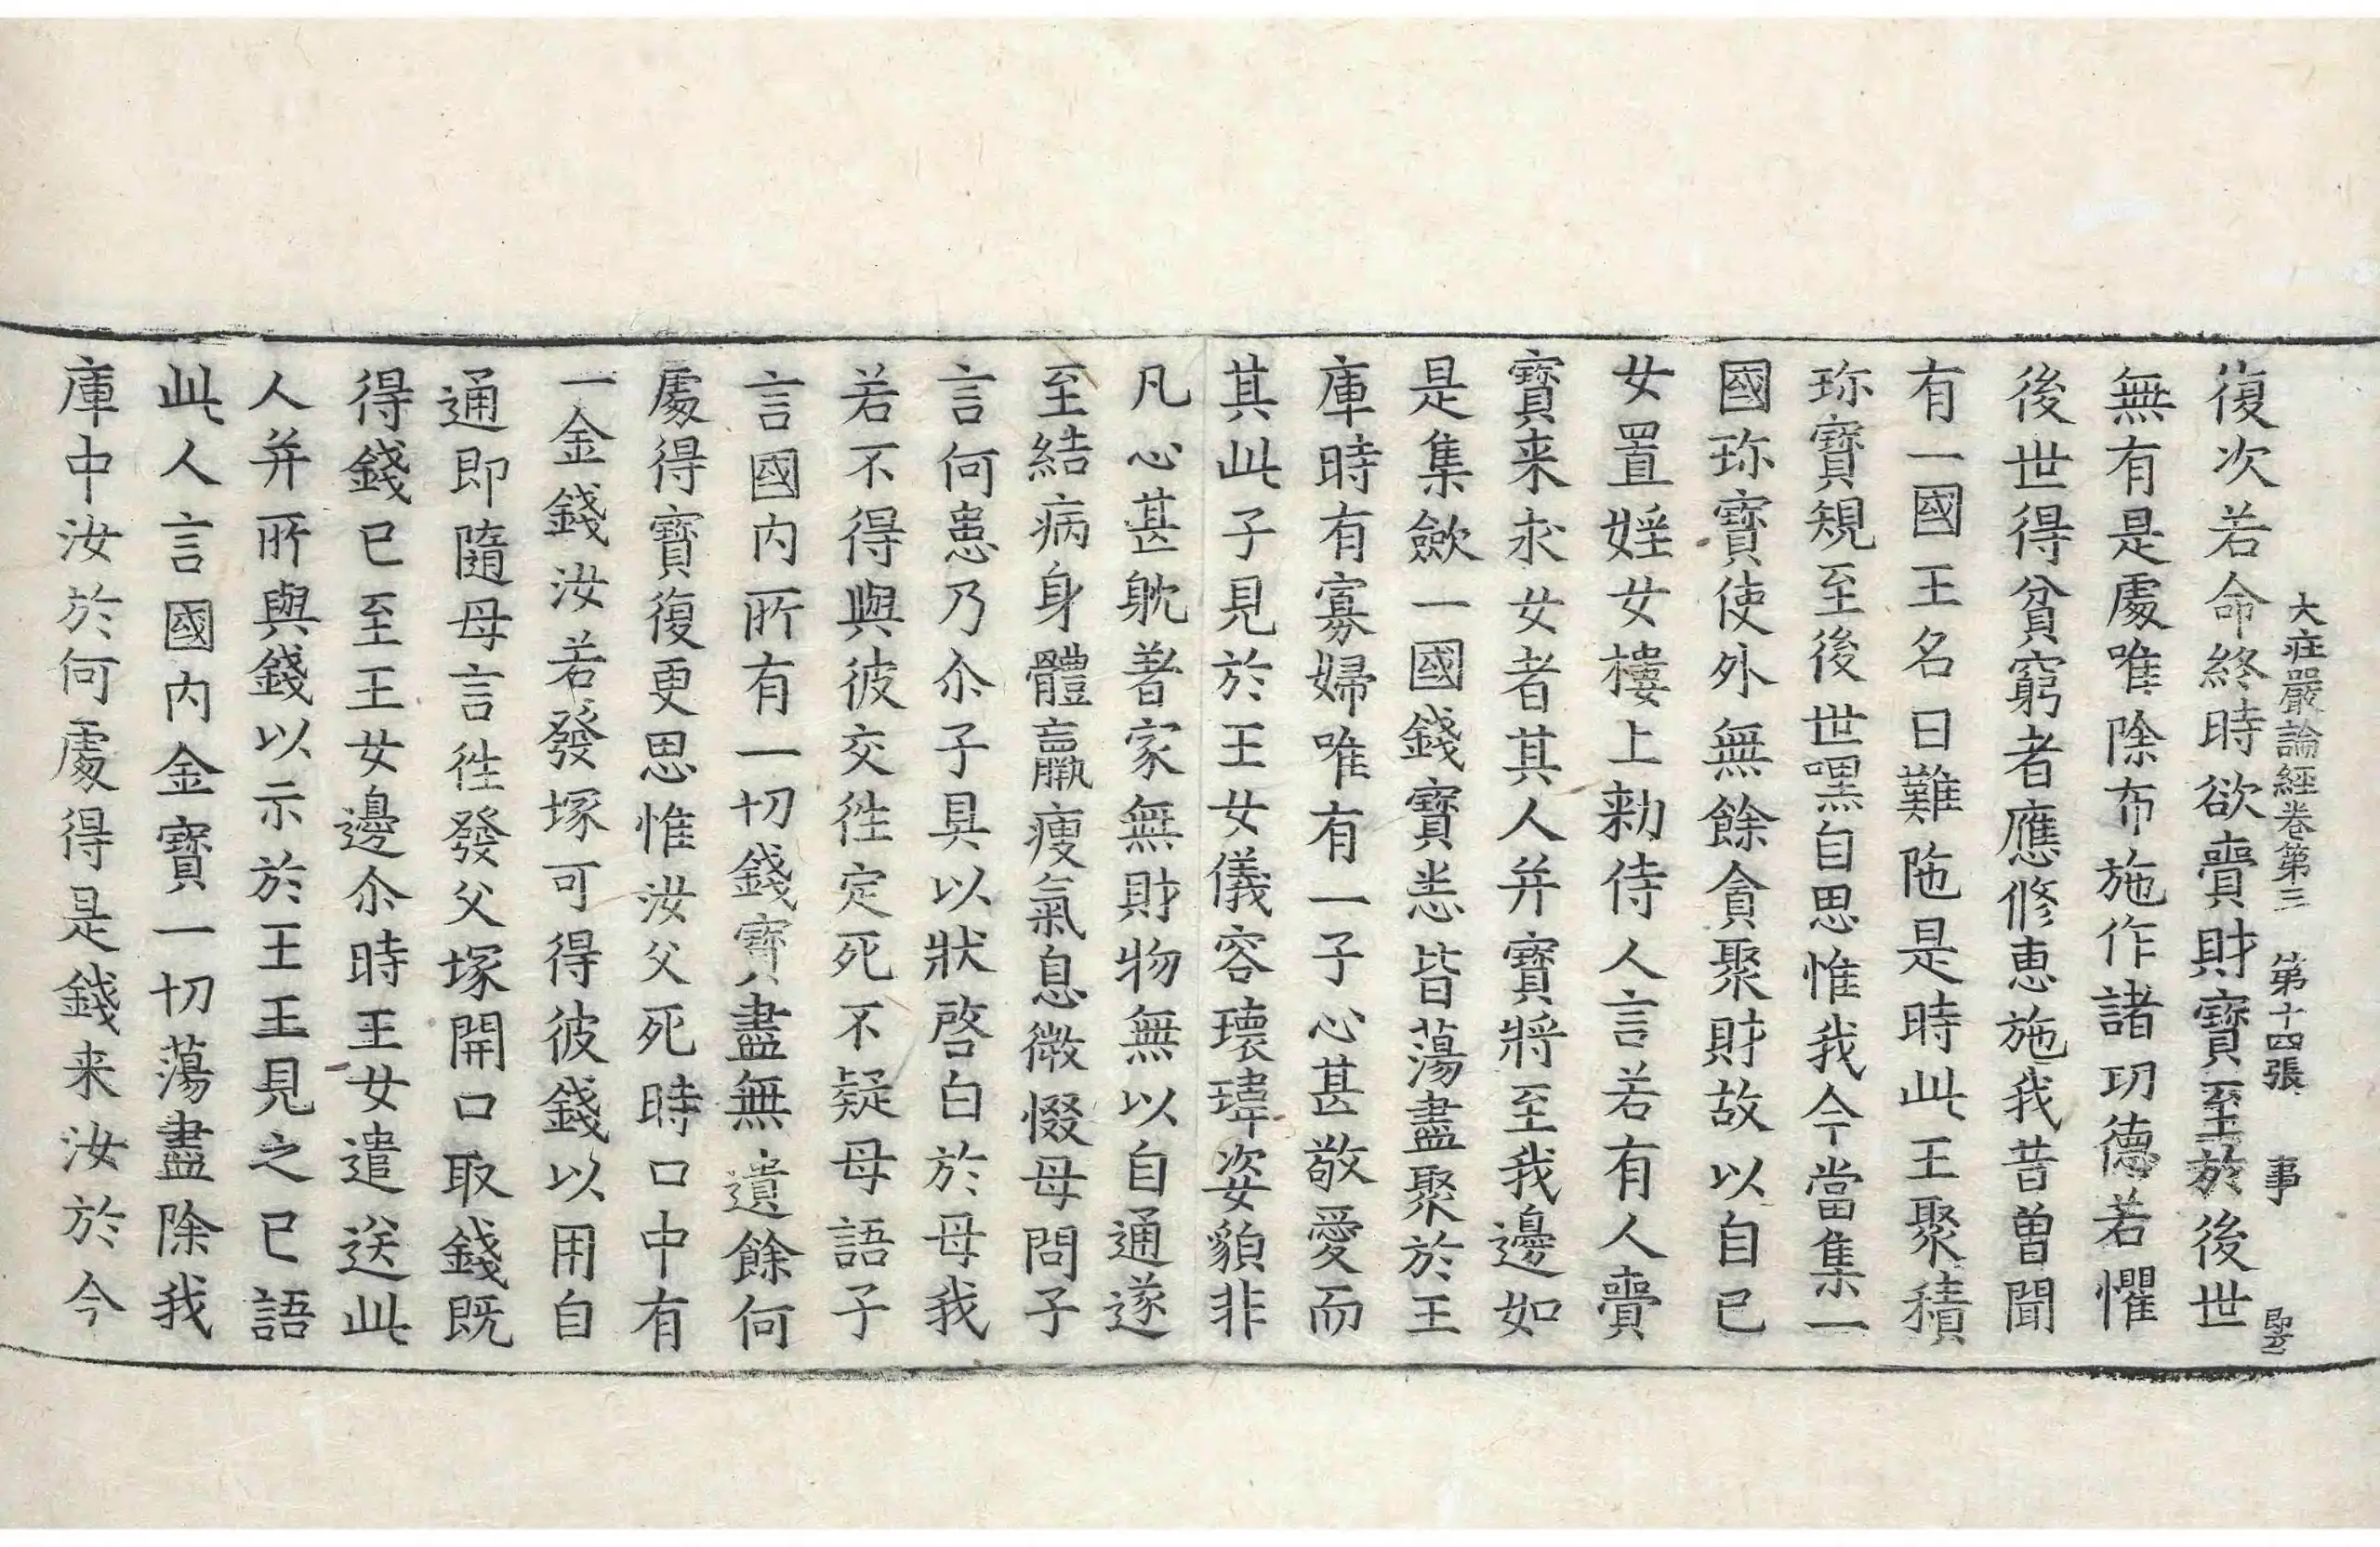 大庄嚴論經卷第三 第十四張 事
復次若命終時欲賷財寶至於後世
無有是處唯除布施作諸功德若懼
後世得貧窮者應修恵施我昔曽聞
有一國王名曰難陁是時此王聚積
珎寶規至後世嘿自思惟我今當集一
國珎寶使外無餘貪聚財故以自己
女置婬女樓上勑侍人言若有人賷
寶来求女者其人并寶將至我邊如
是集斂一國錢寶悉皆蕩盡聚於王
庫時有寡婦唯有一子心甚敬愛而
其此子見於王女儀容瓌瑋姿貌非
凡心甚躭著家無財物無以自通遂
至結病身體羸瘦氣息微惙母問子
言何患乃尒子具以狀啓白於母我
若不得與彼交徃定死不疑母語子
言國内所有一切錢寶盡無遺餘何
處得寶復更思惟汝父死時口中有
一金錢汝若發塚可得彼錢以用自
通即隨母言徃發父塚開口取錢既
得錢已至王女邊尒時王女遣送此
人并所與錢以示於王王見之已語
此人言國内金寶一切蕩盡除我
庫中汝於何處得是錢来汝於今